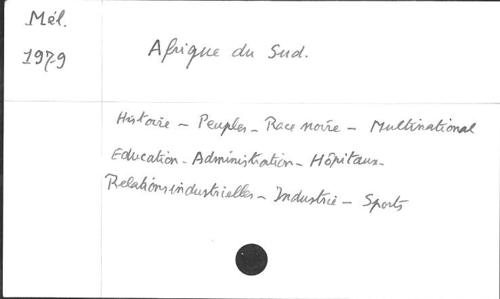 Mél.
1979
Afrique du Sud.
Histoire - Peuples - Race noire - Multinational
Education - Administration - Hôpitaux -
Relations industrielles - Industrie - Sports